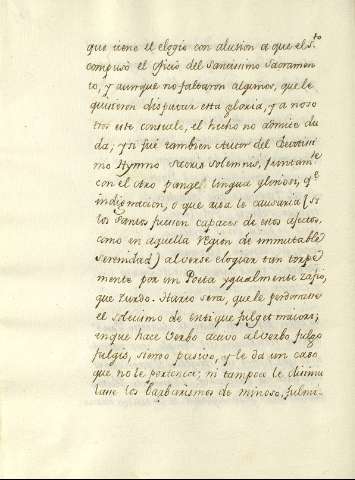 que viene el elogio con alusion a que el S.to
compuso el oficio del Santissimo Sacramen-
to, y aunque no faltaron algunos, que le
quisieron disputar esta gloria, y a noso
tros este consuelo, el hecho no admite du
da; y si fue tambien Autor del devotissi
mo Hymno Sacris solemnis, juntam.te
con el otro pange lingua gloriosi, q.e
indignacion, o que risa le causaria (si
los Santos fuesen capaces de estos afectos,
como en aquella region de immutable
serenidad) al verse elogiar tan torpe
mente por un Poeta ygualmente zafio,
que zurdo. Harto sera, que le perdonase
el solecismo de entique fulget maiori;
en que hace Verbo activo al Verbo fulgo
fulgis, siendo pasivo, y le da un caso
que no le pertenece; ni tampoco le disimu
lase los barbarismos de minoso, fulmi-